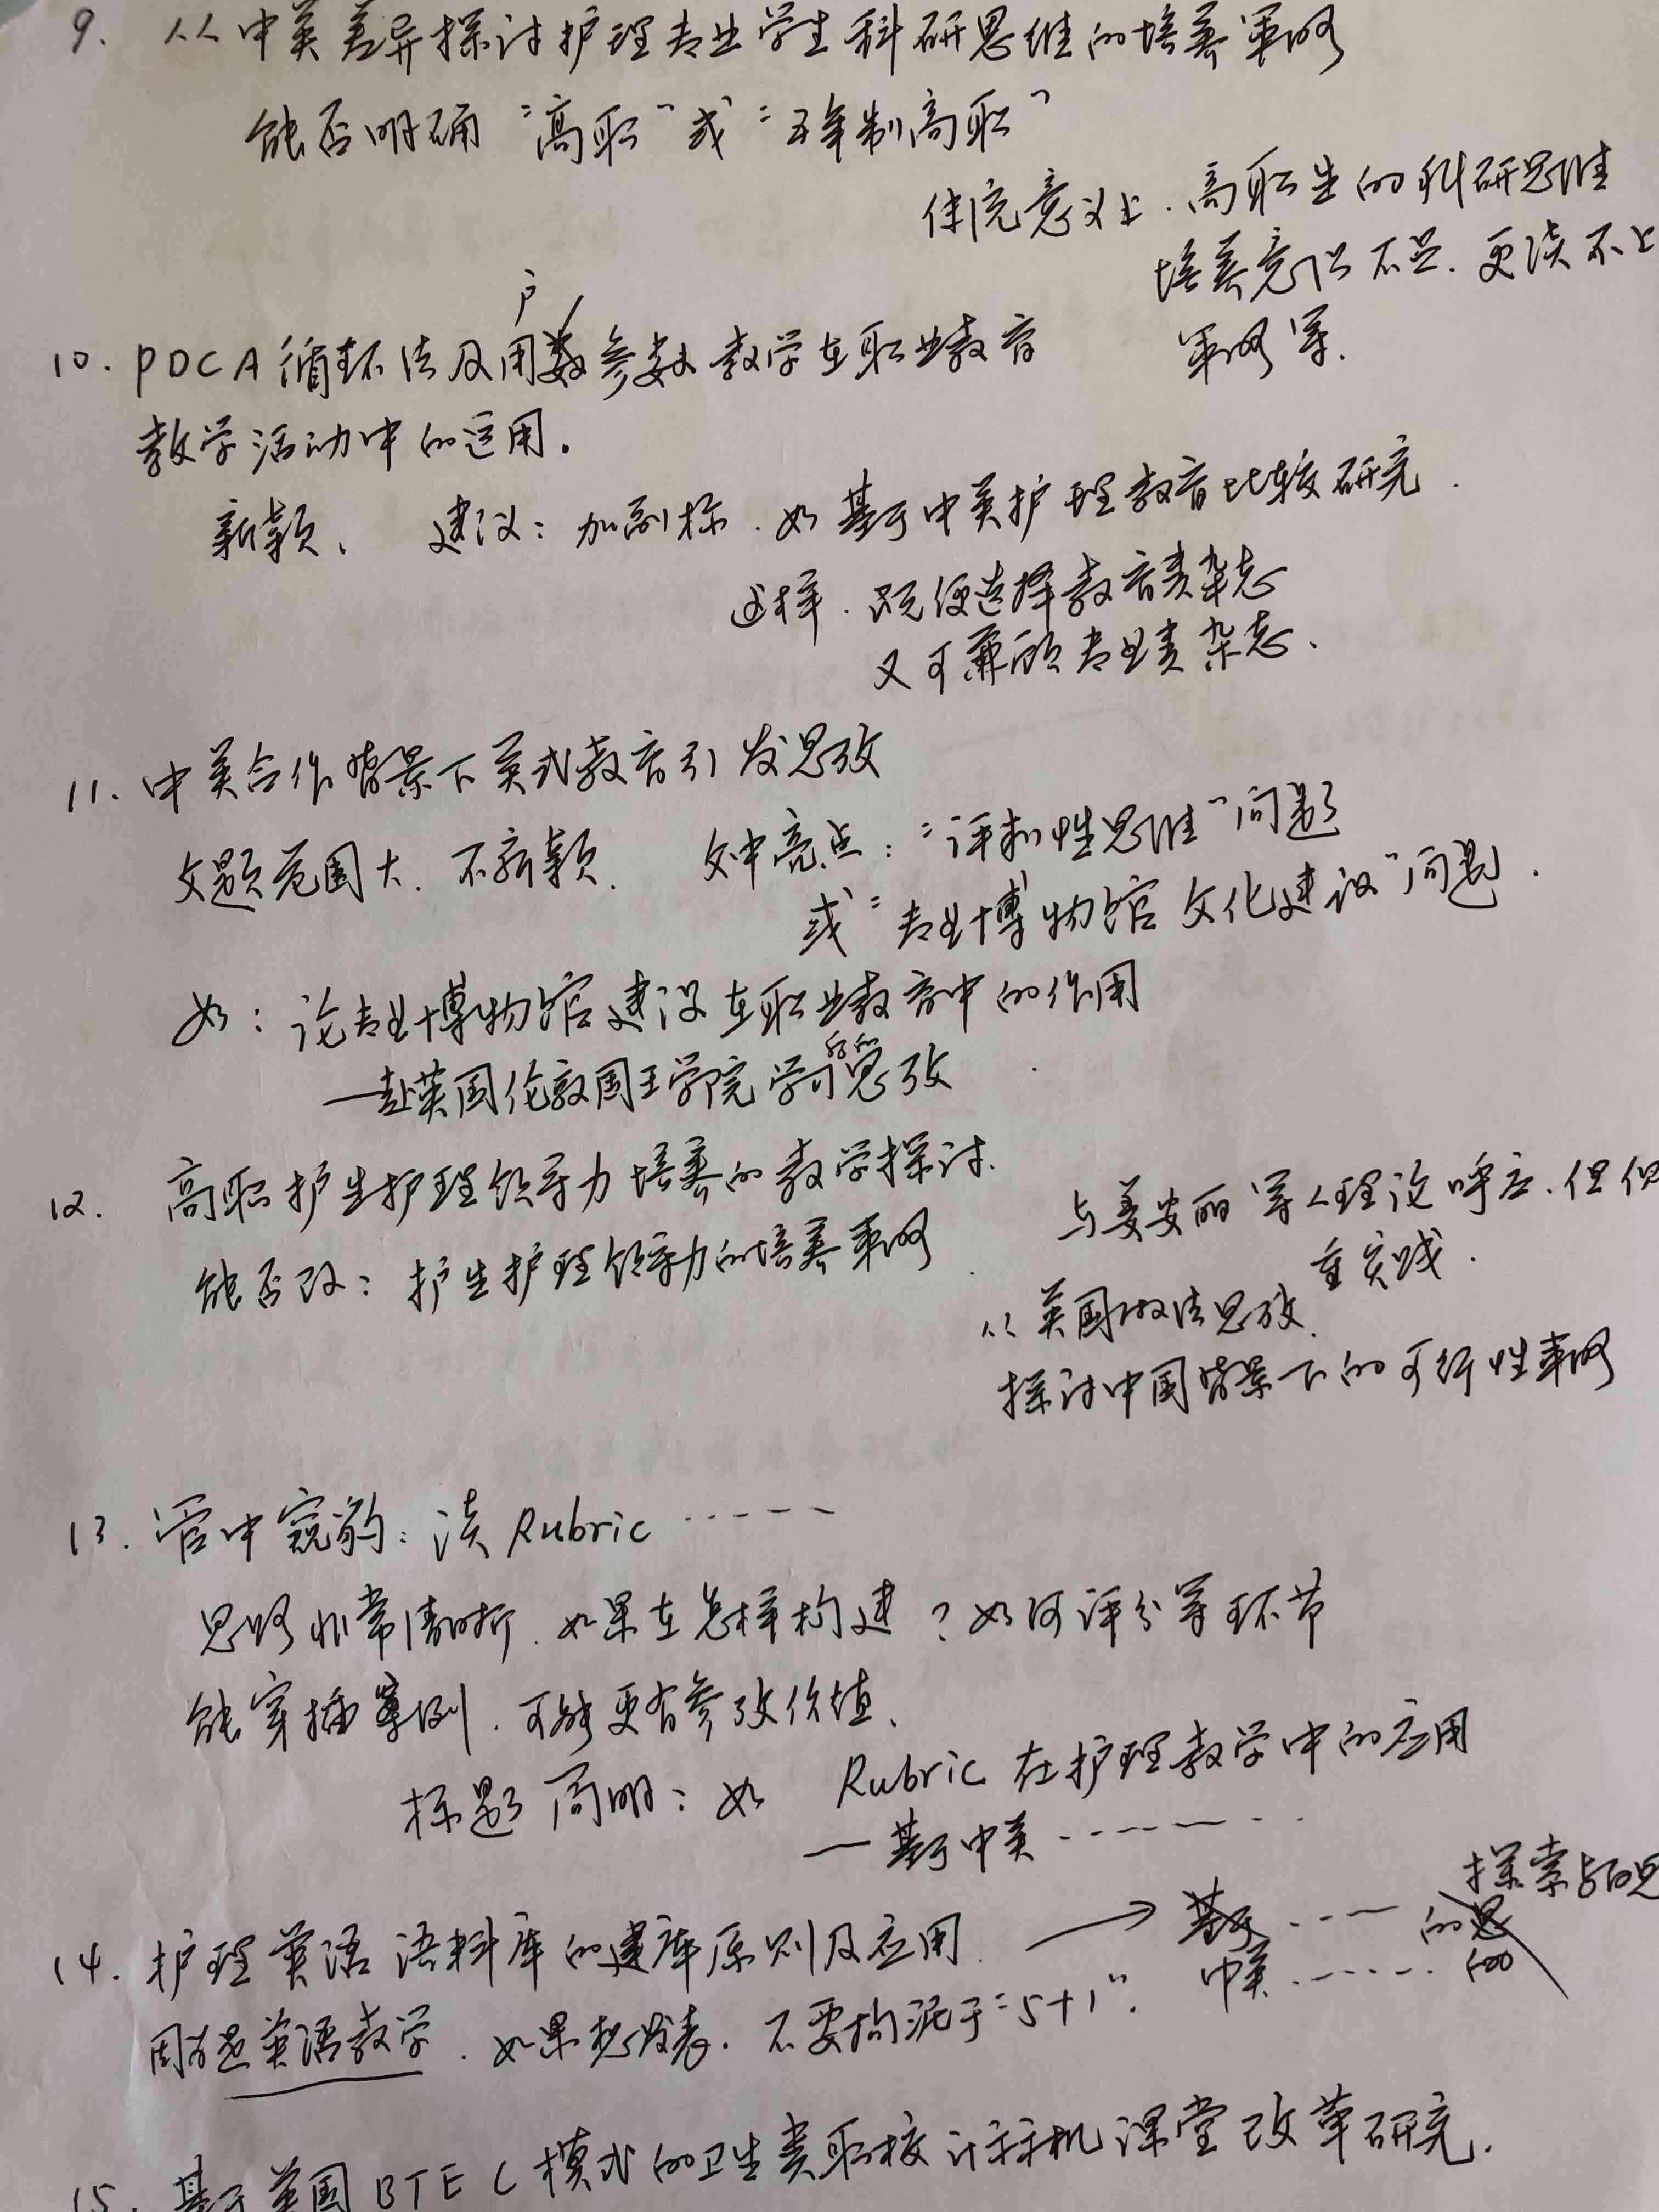 9. 从中英差异探讨护理专业学生科研思维的培养策略
能否明确“高职”或“五年制高职”
传统意义上.高职生的科研思维
培养意识不足.更谈不上
策略等.
户
10. PDCA循环法及用参数教学在职业教育
教学活动中的运用。
新颖、 建议:加副标.如基于中英护理教育比较研究.
这样.既便选择教育类杂志
又可兼顾专业类杂志、
11. 中英合作背景下英式教育引发思考
文题范围大.不新颖. 文中亮点:“评判性思维”问题
或“专业博物馆文化建设”问题.
如:论专业博物馆建设在职业教育中的作用
—赴英国伦敦国王学院学习思考
12. 高职护生护理领导力培养的教学探讨.
与姜安丽等人理论呼应.但但
能否改:护生护理领导力的培养策略
重实践.
从英国做法思考.
探讨中国背景下的可行性策略
13. 管中窥豹:谈Rubric ……
思路非常清晰.如果在怎样构建?如何评分等环节
能穿插案例.可能更有参考价值、
标题简明:如 Rubric在护理教学中的应用
—基于中英………
探索与
14. 护理英语语料库的建库原则及应用. → 基于……的思
中英……
英语教学.如果想发表.不要拘泥于“5+1”.
15. 基于英国BTEC模式的卫生类职校计算机课堂改革研究.